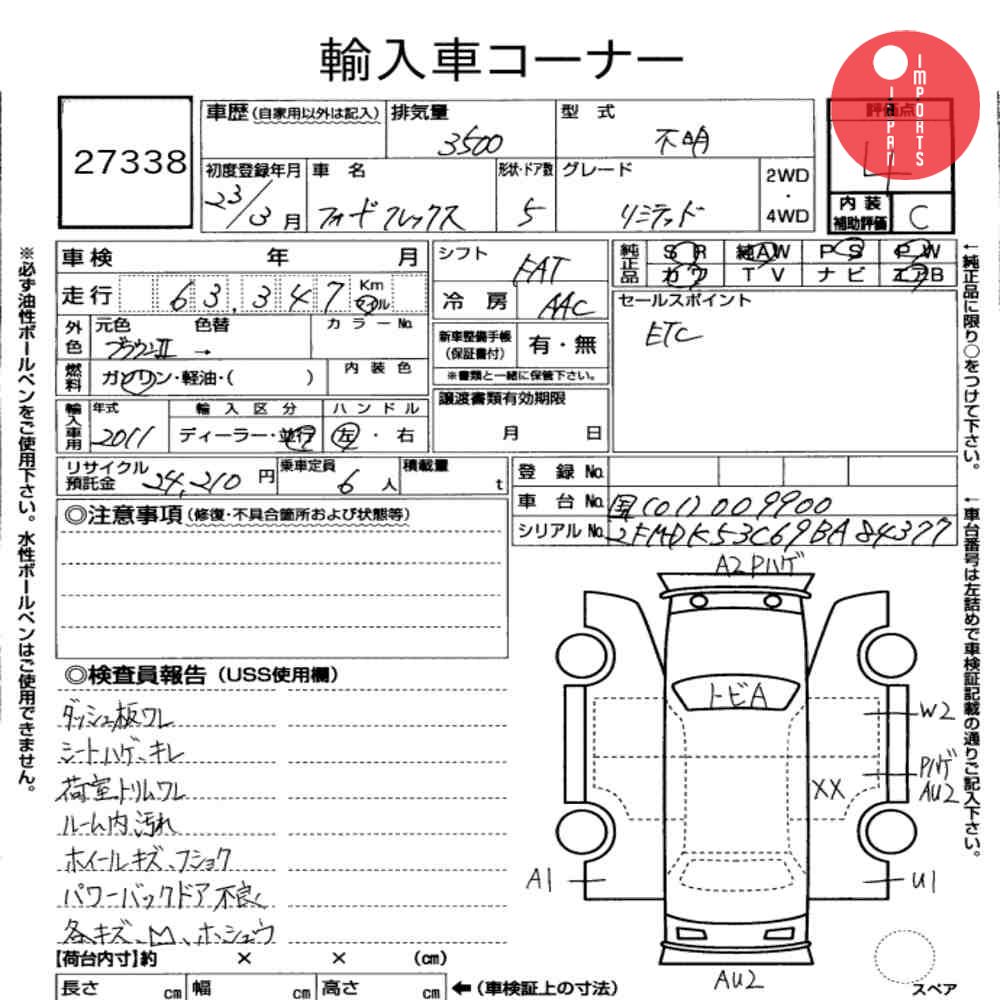 輸入車コーナー
JAPAN IMPORTS
27338
車歴(自家用以外は記入) 排気量 3500 型式 不明 評価点 4
初度登録年月 23/3月 車名 フォードフレックス 形状・ドア数 5 グレード リミテッド 2WD・4WD
内装補助評価 C
車検 年 月 シフト FAT 純正品 SR 純AW PS PW
カワ TV ナビ エアB
走行 63,347 Km マイル 冷房 AAC
セールスポイント
ETC
外色 元色 ブラウンII 色替 → カラーNo.
新車整備手帳(保証書付) 有・無
※書類と一緒に保管下さい。
燃料 ガソリン・軽油・( ) 内装色
譲渡書類有効期限 月 日
輸入車用 年式 2011 輸入区分 ディーラー・並行 ハンドル 左・右
リサイクル預託金 24,210円 乗車定員 6人 積載量 t
登録No.
車台No. 国(01)009900
シリアルNo. 2FMDK53C69BA84377
◎注意事項(修復・不具合箇所および状態等)
◎検査員報告(USS使用欄)
ダッシュ板ワレ
シートハゲ、キレ
荷室トリムワレ
ルーム内汚れ
ホイールキズ、フショク
パワーバックドア不良く
各キズ、凹、ホシュウ
A2 Pハゲ
トビA
W2
Pハゲ
AU2
XX
A1
U1
AU2
スペア
【荷台内寸】約 × × (cm)
長さ cm 幅 cm 高さ cm ←(車検証上の寸法)
※必ず油性ボールペンをご使用下さい。水性ボールペンはご使用できません。
←純正品に限り○をつけて下さい。
←車台番号は左詰めで車検証記載の通りご記入下さい。